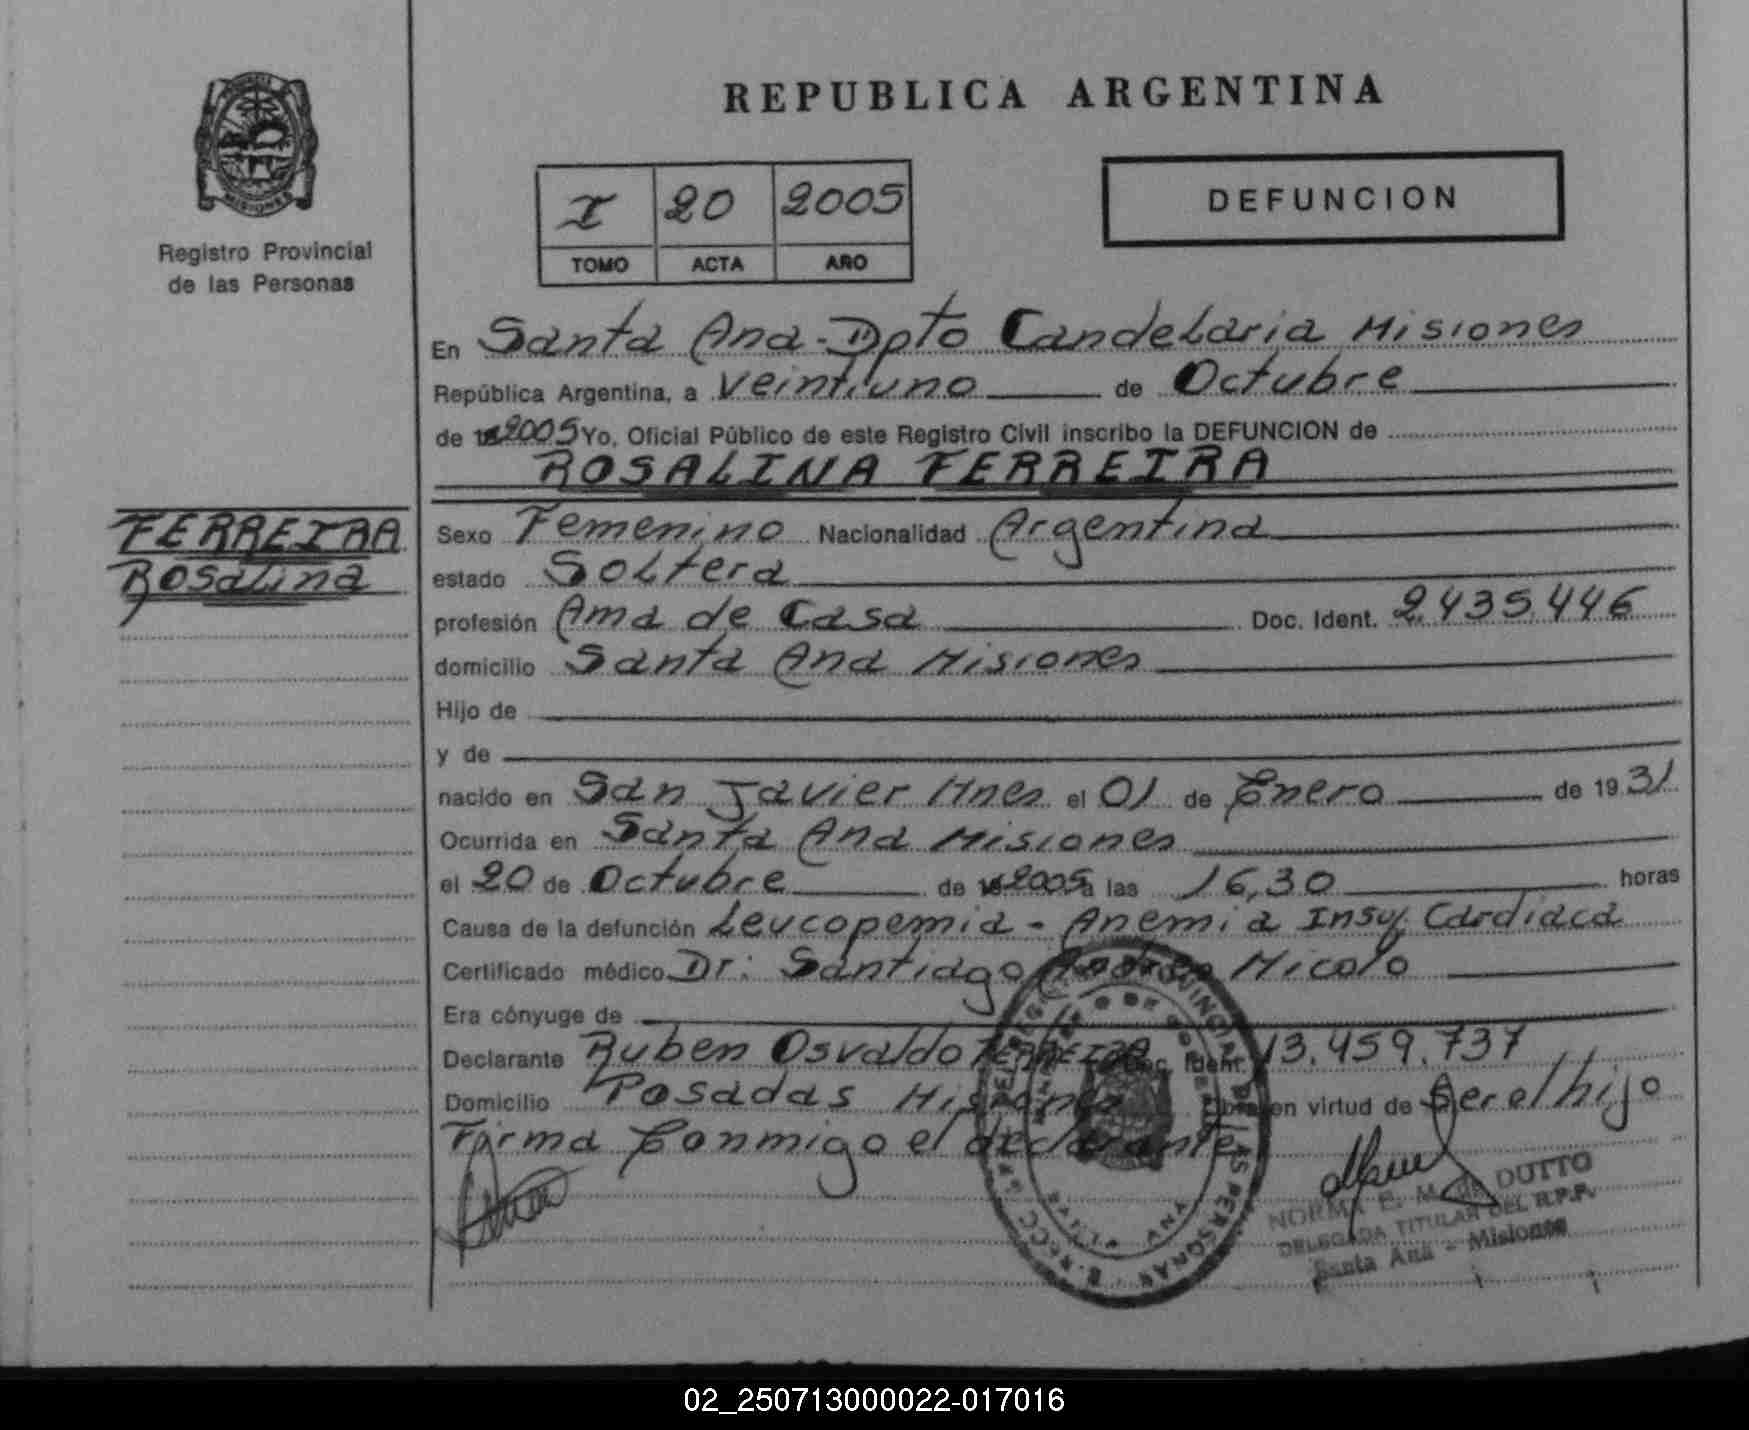 REPUBLICA ARGENTINA
DEFUNCION
I 20 2005
TOMO ACTA AÑO
Registro Provincial
de las Personas
En Santa Ana - Dpto Candelaria Misiones
República Argentina, a Veintiuno de Octubre
de 2005 Yo, Oficial Público de este Registro Civil inscribo la DEFUNCION de
ROSALINA FERREIRA
FERREIRA
Rosalina
Sexo Femenino Nacionalidad Argentina
estado Soltera
profesión Ama de Casa Doc. Ident. 2.435.446
domicilio Santa Ana Misiones
Hijo de
y de
nacido en San Javier Mnes el 01 de Enero de 1931
Ocurrida en Santa Ana Misiones
el 20 de Octubre de 2005 a las 16,30 horas
Causa de la defunción Leucopemia - Anemia Insuf. Cardiaca
Certificado médico Dr: Santiago Micolo
Era cónyuge de
Declarante Ruben Osvaldo FERREIRA Doc. Ident. 13.459.737
Domicilio Posadas Misiones Obra en virtud de Ser el hijo
Firma Conmigo el declarante
NORMA E. M. de DUTTO
DELEGADA TITULAR DEL R.P.P.
Santa Ana - Misiones
02_250713000022-017016